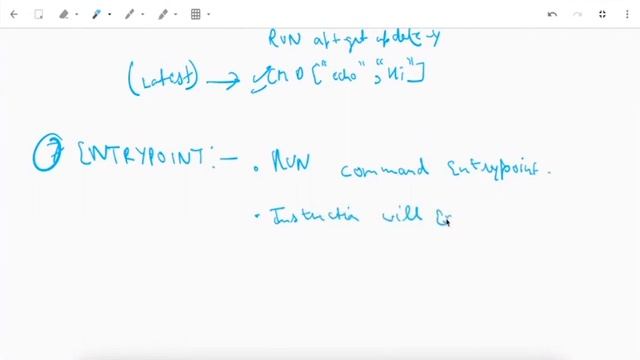 RUN apt-get update -y
(Latest) → CMD ["echo", "Hi"]
7 ENTRYPOINT :- • RUN command Entrypoint.
• Instruction will